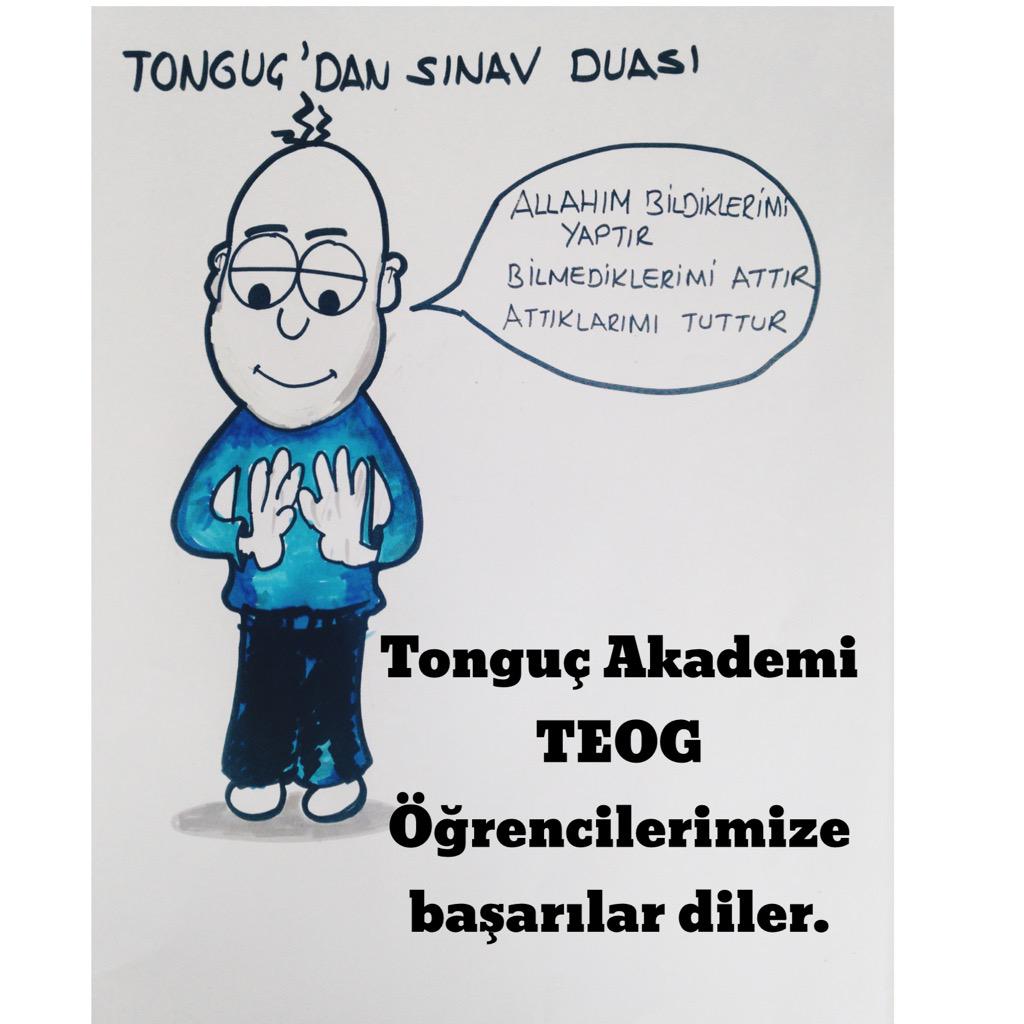 TONGUÇ'DAN SINAV DUASI
ALLAHIM BİLDİKLERİMİ
YAPTIR
BİLMEDİKLERİMİ ATTIR
ATTIKLARIMI TUTTUR
Tonguç Akademi
TEOG
Öğrencilerimize
başarılar diler.